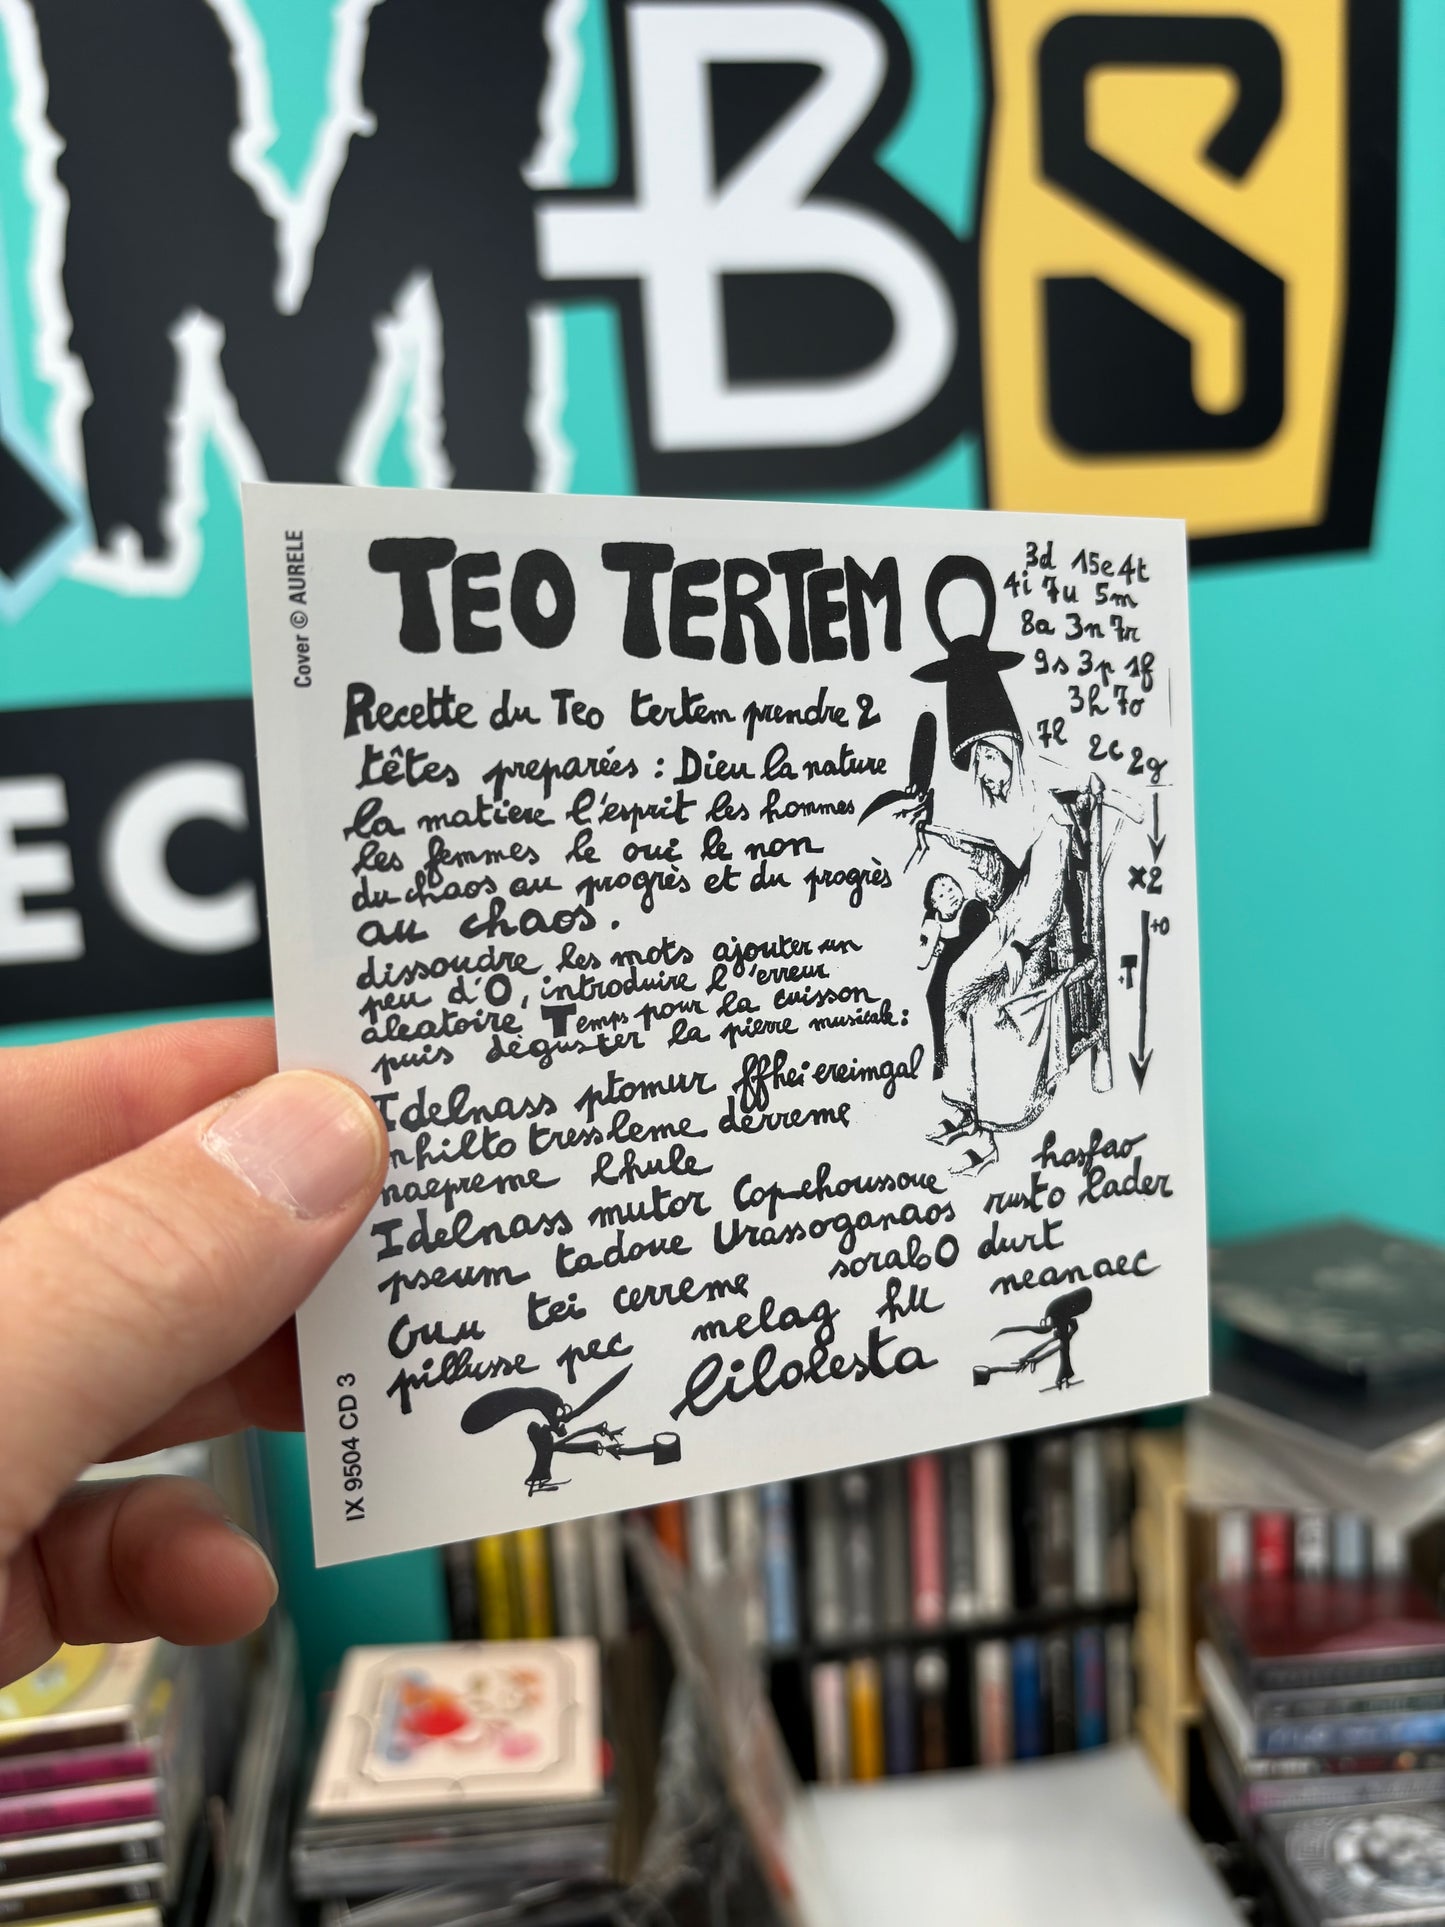 MBS
EC
Cover © AURELE
TEO TERTEM
Recette du Teo tertem prendre 2
têtes preparées : Dieu la nature
la matiere l'esprit les hommes
les femmes le oui le non
du chaos au progrès et du progrès
au chaos.
dissoudre les mots ajouter un
peu d'O, introduire l'erreur
aleatoire Temps pour la cuisson
puis déguster la pierre musicale:
Idelnass ptomur ffheiereimgal
nhilto tressleme derreme
naepreme lhule
Idelnass mutor Copehoussoue hasfao
pseum tadoue Urassoganaos rusto lader
Ouu tei cerreme sorabO durt
pillusse pec melag hu neanaec
lilolesta
3d 15e 4t
4i 7u 5m
8a 3n 7r
9s 3p 1f
3h 7o
7l 2c 2g
x2
+O
+T
IX 9504 CD 3